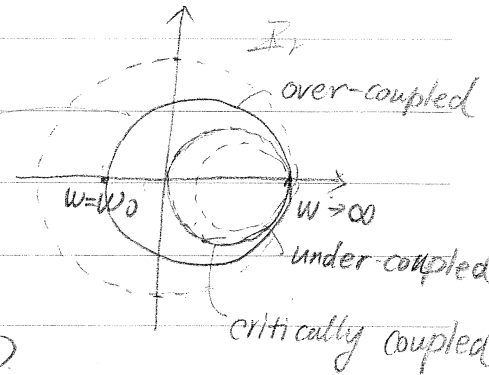 over-coupled
w=w₀
w→∞
under-coupled
critically coupled